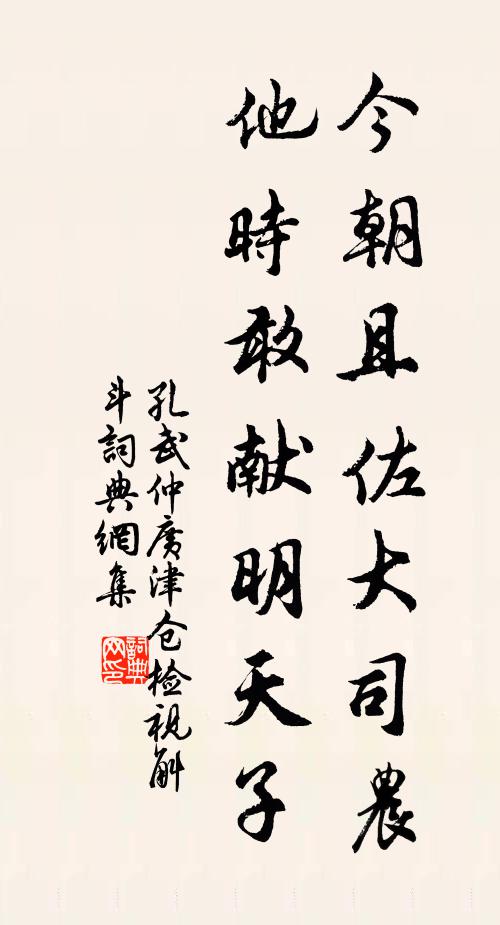 今朝且佐大司農
他時敢献明天子
孔武仲廣津仓检視斛
斗詞典網集
詞典
网印